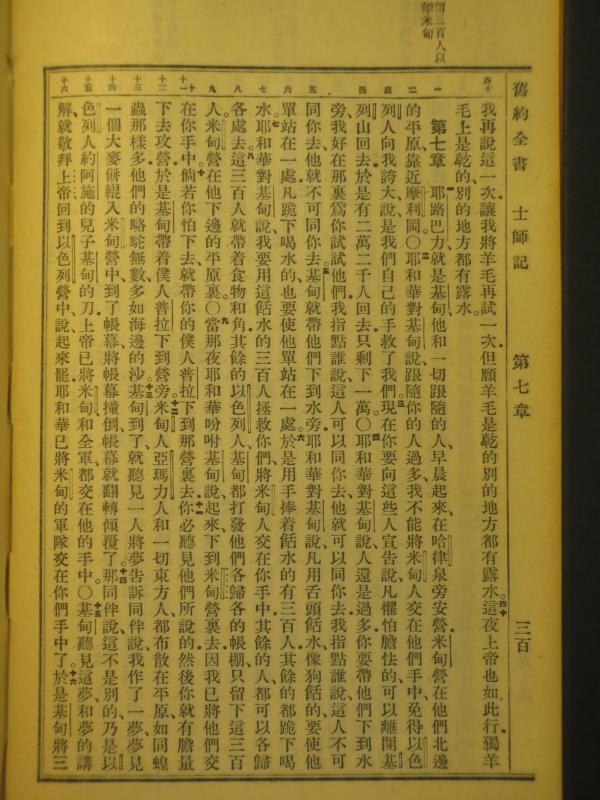 舊約全書　士師記　第七章　三百
我再說這一次、讓我將羊毛再試一次、但願羊毛是乾的、別的地方都有露水。這夜上帝也如此行、獨羊
毛上是乾的、別的地方都有露水。
第七章　耶路巴力就是基甸、他和一切跟隨的人、早晨起來、在哈律泉旁安營、米甸營在他們北邊
的平原、靠近摩利岡。〇耶和華對基甸說、跟隨你的人過多、我不能將米甸人交在他們手中、免得以色
列人向我誇大、說、是我們自己的手救了我們。現在你要向這些人宣告說、凡懼怕膽怯的、可以離開基
列山回去、於是有二萬二千人回去、只剩下一萬。〇耶和華對基甸說、人還是過多、你要帶他們下到水
旁、我好在那裏為你試試他們、我指點誰說、這人可以同你去、他就可以同你去、我指點誰說、這人不可
同你去、他就不可同你去。基甸就帶他們下到水旁、耶和華對基甸說、凡用舌頭餂水、像狗餂的、要使他
單站在一處、凡跪下喝水的、也要使他單站在一處。於是用手捧着餂水的有三百人、其餘的都跪下喝
水。耶和華對基甸說、我要用這餂水的三百人拯救你們、將米甸人交在你手中、其餘的人都可以各歸
各處去。這三百人就帶着食物和角、其餘的以色列人、基甸都打發他們各歸各的帳棚、只留下這三百
人、米甸營在他下邊的平原裏。〇當那夜耶和華吩咐基甸說、起來、下到米甸營裏去、因我已將他們交
在你手中。倘若你怕下去、就帶你的僕人普拉下到那營裏去。你必聽見他們所說的、然後你就有膽量
下去攻營、於是基甸帶着僕人普拉下到營旁。米甸人、亞瑪力人、和一切東方人、都布散在平原、如同蝗
蟲那樣多、他們的駱駝無數、多如海邊的沙。基甸到了、就聽見一人將夢告訴同伴說、我作了一夢、夢見
一個大麥餅輥入米甸營中、到了帳幕、將帳幕撞倒、帳幕就翻轉傾覆了。那同伴說、這不是別的、乃是以
色列人約阿施的兒子基甸的刀、上帝已將米甸和全軍、都交在他的手中。〇基甸聽見這夢和夢的講
解、就敬拜上帝、回到以色列營中、說、起來罷、耶和華已將米甸的軍隊交在你們手中了。於是基甸將三